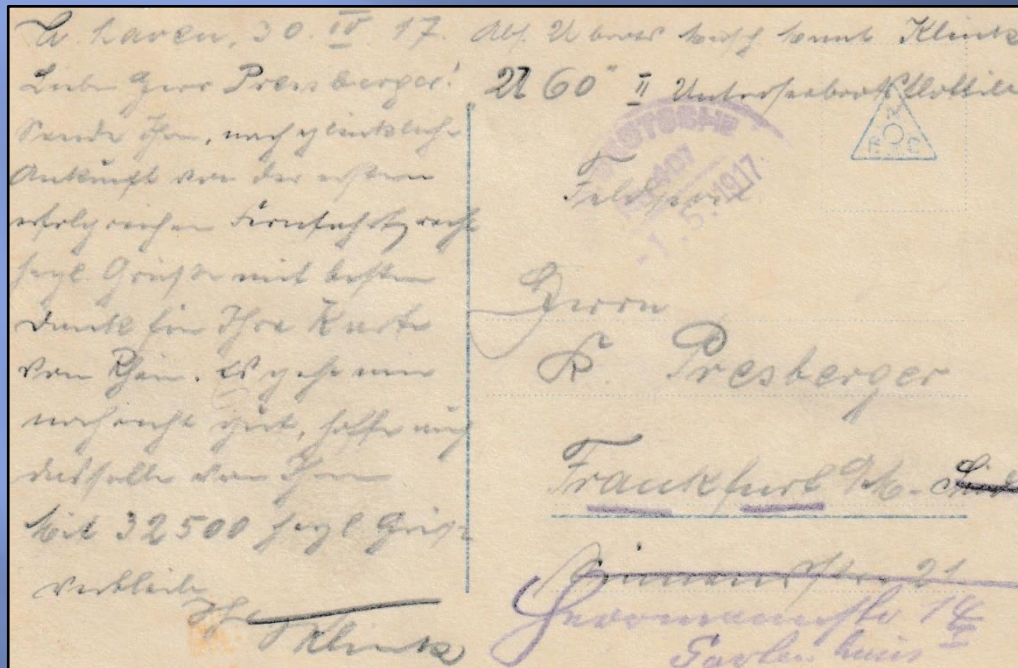 W. haven, 30. IV 17.
Lieber Herr Presberger!
Sende Ihnen, nach glücklicher
Ankunft von der ersten
erfolgreichen Fernfahrt, recht
hrzl. Grüße mit besten
Dank für Ihre Karte
vom Rhein. Es geht mir
noch recht gut, hoffe auch
dasselbe von Ihnen
Mit 32500 hrzl. Grüßen
verbleibe
Ihr Klink
Abs. U boots Klink
"U 60" II Unterseeboots flottille
DEUTSCHE
1.5.1917
Feldpost
Herrn
K Presberger
Frankfurt M.-
21
Herrmannstr 18
I